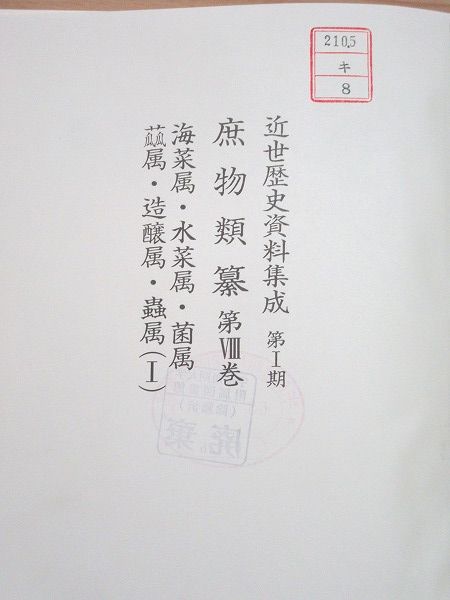 210.5
キ
8
近世歴史資料集成 第Ⅰ期
庶物類纂 第Ⅷ巻
海菜属・水菜属・菌属
蓏属・造醸属・蟲属(Ⅰ)
廃棄